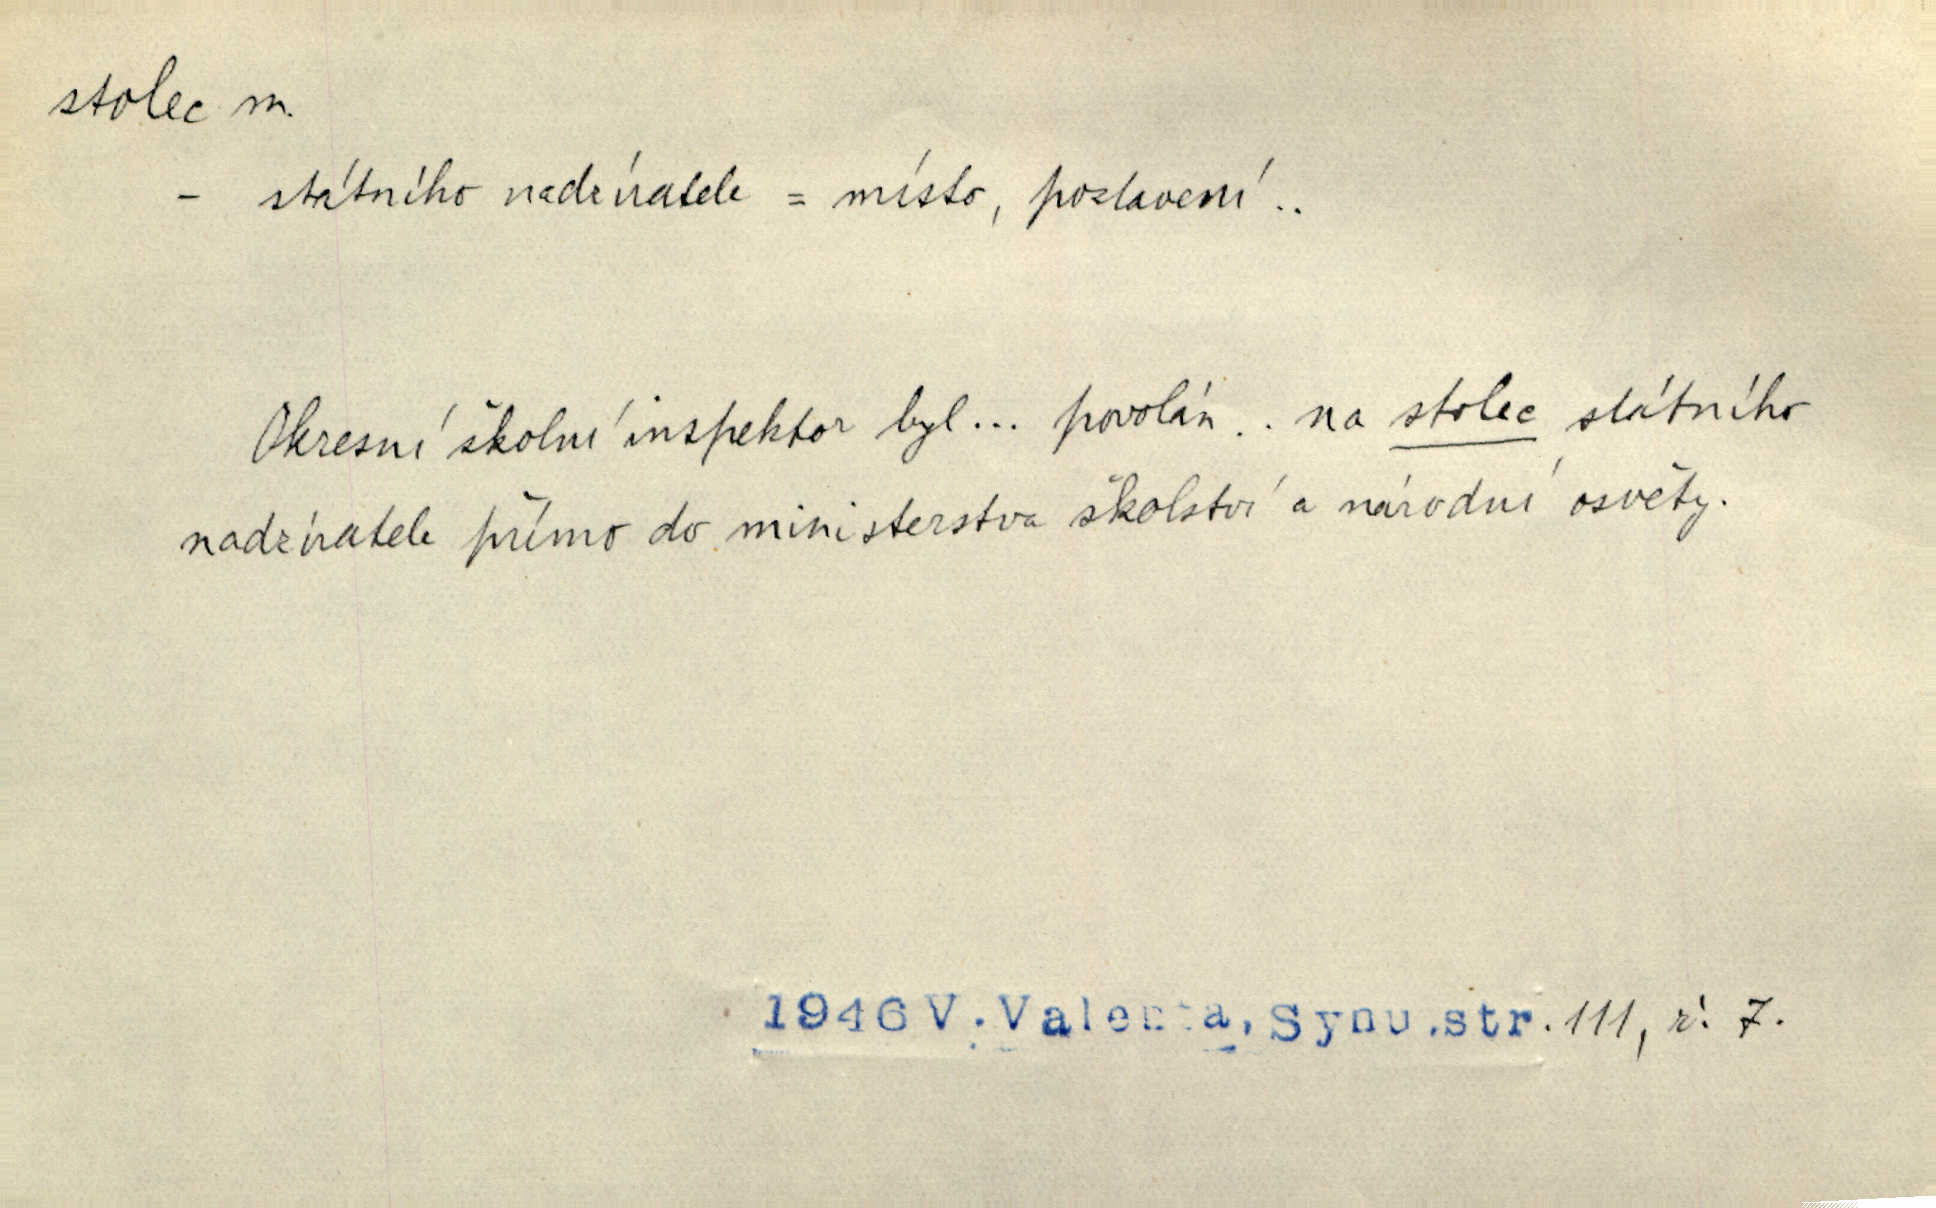 stolec m.
- státního nadzíratele = místo, postavení..
Okresní školní inspektor byl... povolán.. na stolec státního
nadzíratele přímo do ministerstva školství a národní osvěty.
1946 V.Valenta, Synu.str.111, ř. 7.